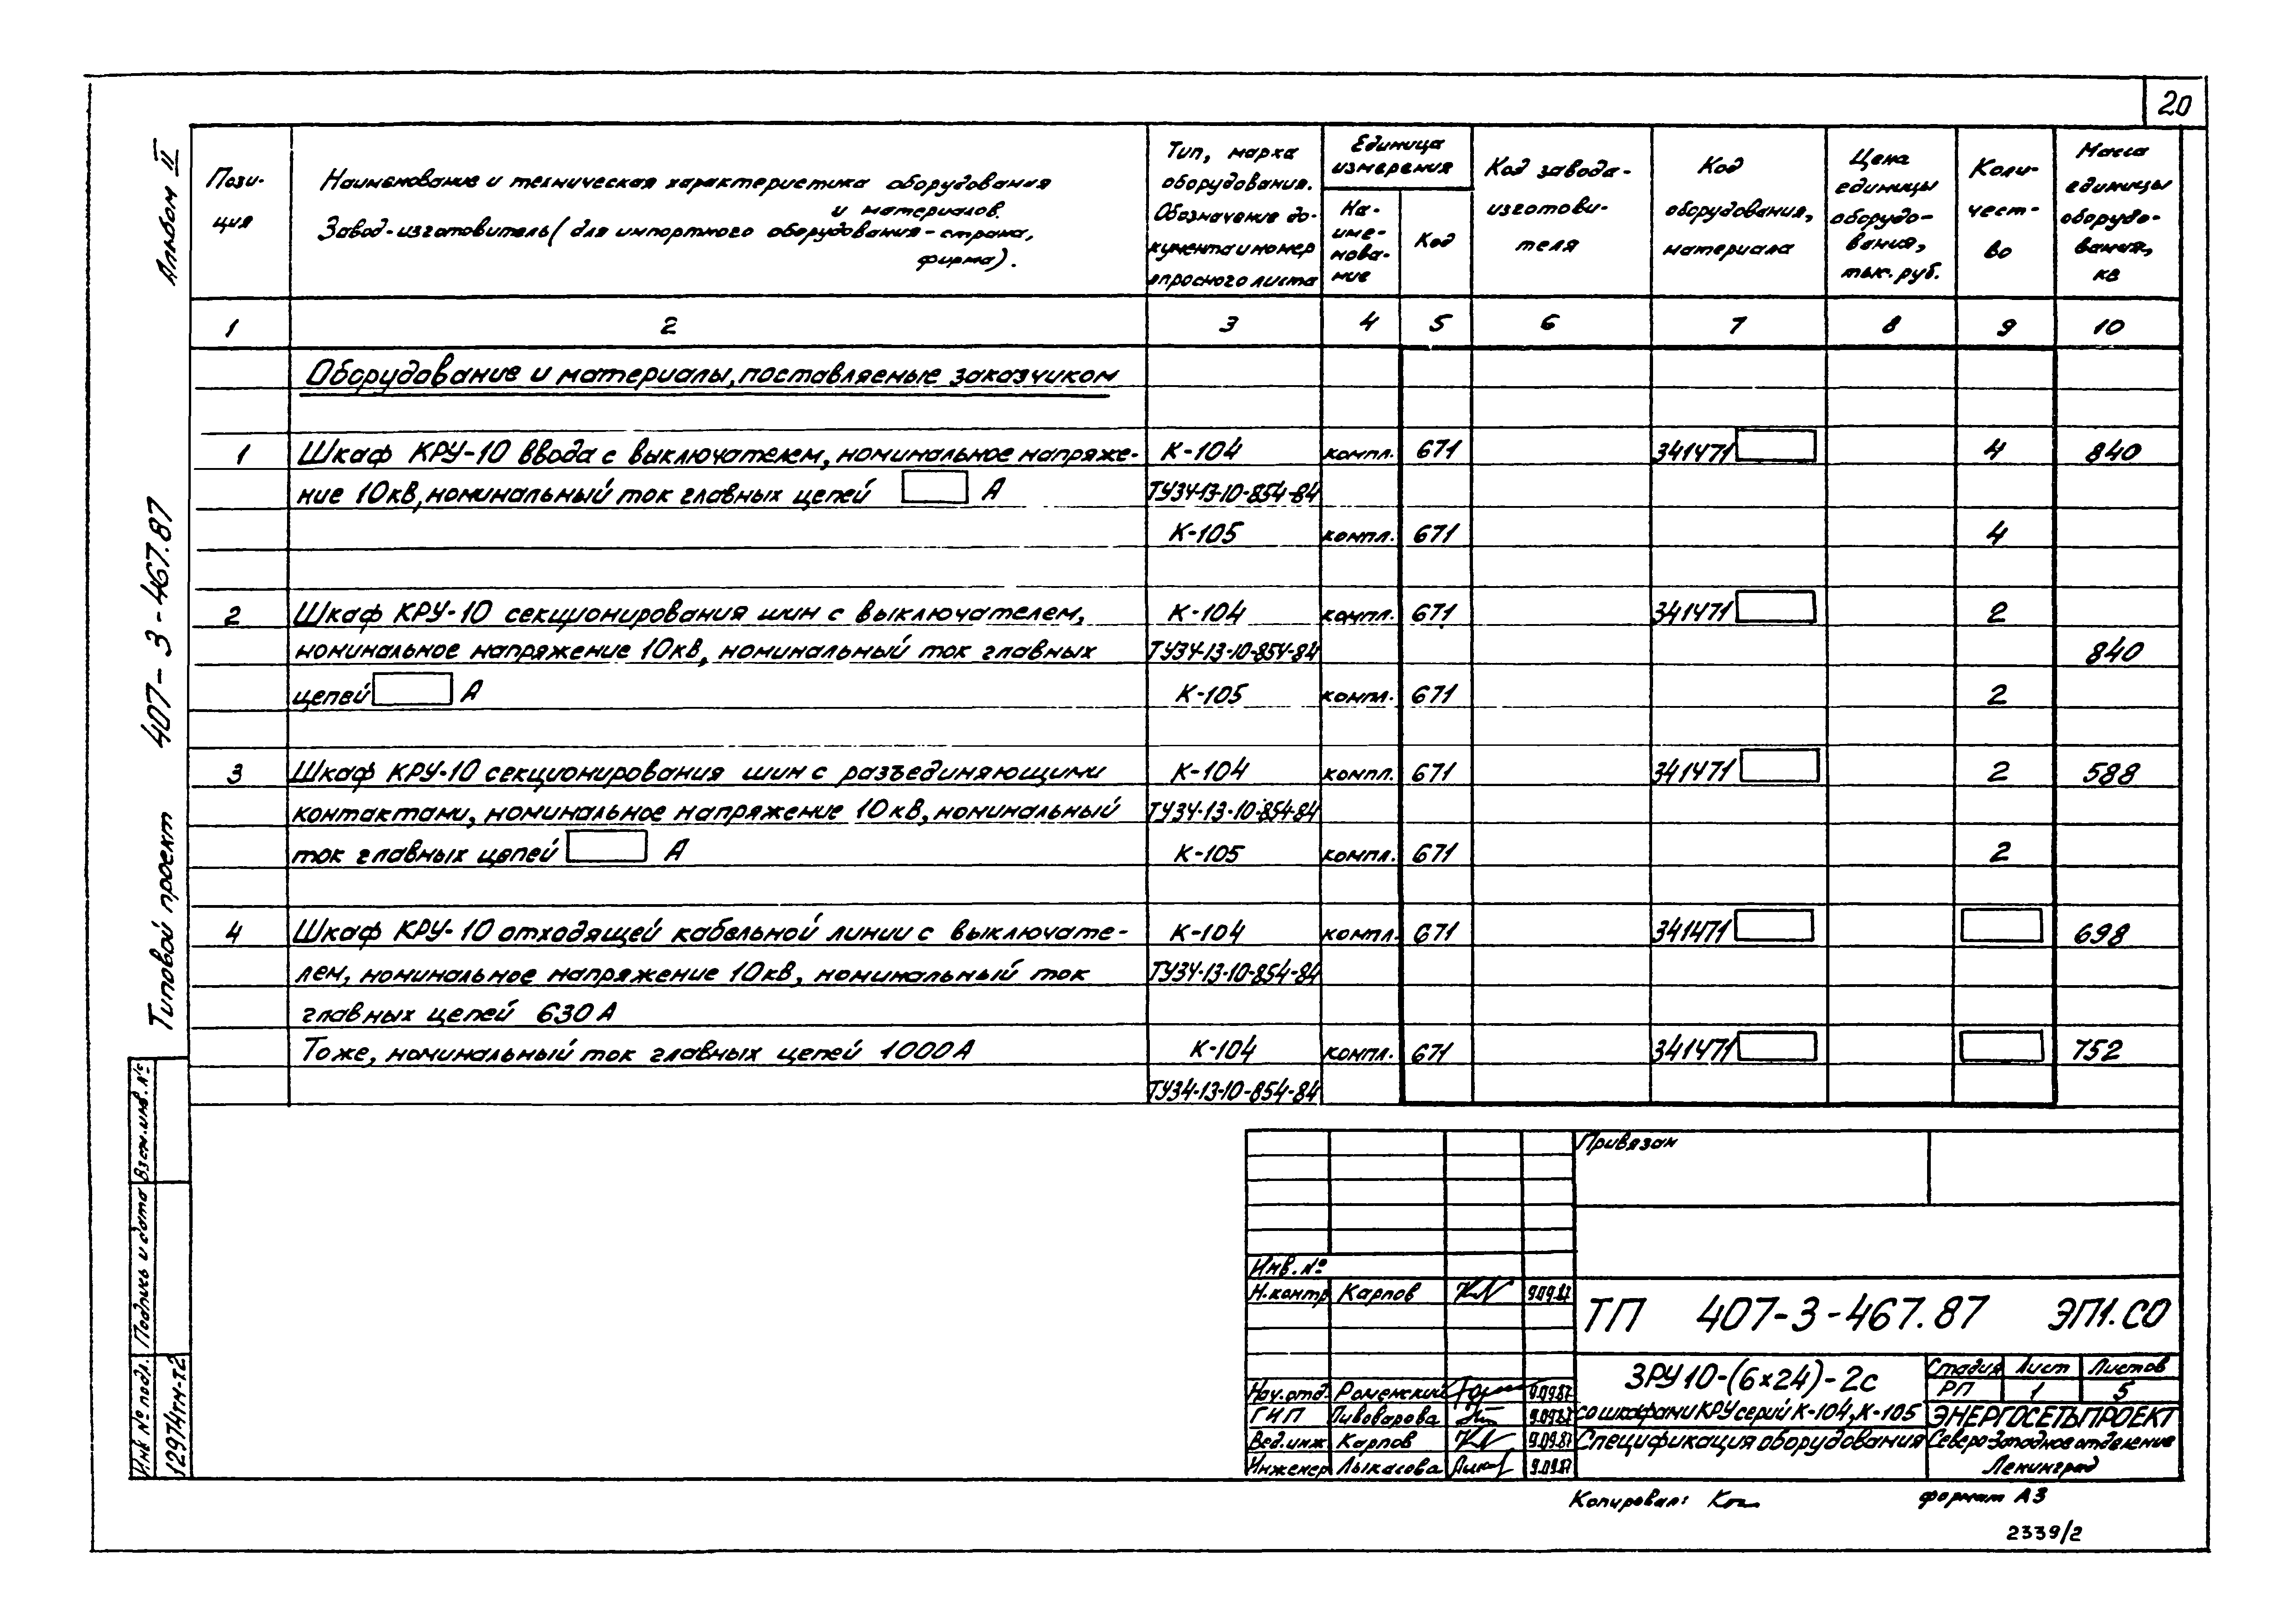 20
Альбом II
407-3-467.87
Типовой проект
Пози-
ция
Наименование и техническая характеристика оборудования
и материалов.
Завод-изготовитель (для импортного оборудования-страна,
фирма).
Тип, марка
оборудования.
Обозначение до-
кумента и номер
опросного листа
Единица
измерения
На-
име-
нова-
ние
Код
Код завода-
изготови-
теля
Код
оборудования,
материала
Цена
единицы
оборудо-
вания,
тыс. руб.
Коли-
чест-
во
Масса
единицы
оборудо-
вания,
кг
1 2 3 4 5 6 7 8 9 10
Оборудование и материалы, поставляемые заказчиком
1 Шкаф КРУ-10 ввода с выключателем, номинальное напряже- К-104 компл. 671 341471 4 840
ние 10кВ, номинальный ток главных цепей А ТУ34-13-10-854-84
К-105 компл. 671 4
2 Шкаф КРУ-10 секционирования шин с выключателем, К-104 компл. 671 341471 2
номинальное напряжение 10кВ, номинальный ток главных ТУ34-13-10-854-84 840
цепей А К-105 компл. 671 2
3 Шкаф КРУ-10 секционирования шин с разъединяющими К-104 компл. 671 341471 2 588
контактами, номинальное напряжение 10кВ, номинальный ТУ34-13-10-854-84
ток главных цепей А К-105 компл. 671 2
4 Шкаф КРУ-10 отходящей кабельной линии с выключате- К-104 компл. 671 341471 698
лем, номинальное напряжение 10кВ, номинальный ток ТУ34-13-10-854-84
главных цепей 630А
Тоже, номинальный ток главных цепей 1000А К-104 компл. 671 341471 752
ТУ34-13-10-854-84
Взам.инв.№
Подпись и дата
Инв № подл.
12974тм-т2
Привязан
Инв.№
Н.контр Карпов 9.09.87
ТП 407-3-467.87 ЭП1.СО
Нач.отд. Роменский 9.09.87
ГИП Пивоварова 9.09.87
Вед.инж Карпов 9.09.87
Инженер Лыкасова 9.09.87
ЗРУ10-(6х24)-2с
со шкафами КРУ серий К-104, К-105
Спецификация оборудования
Стадия Лист Листов
РП 1 5
ЭНЕРГОСЕТЬПРОЕКТ
Северо-Западное отделение
Ленинград
Копировал:
формат А3
2339/2